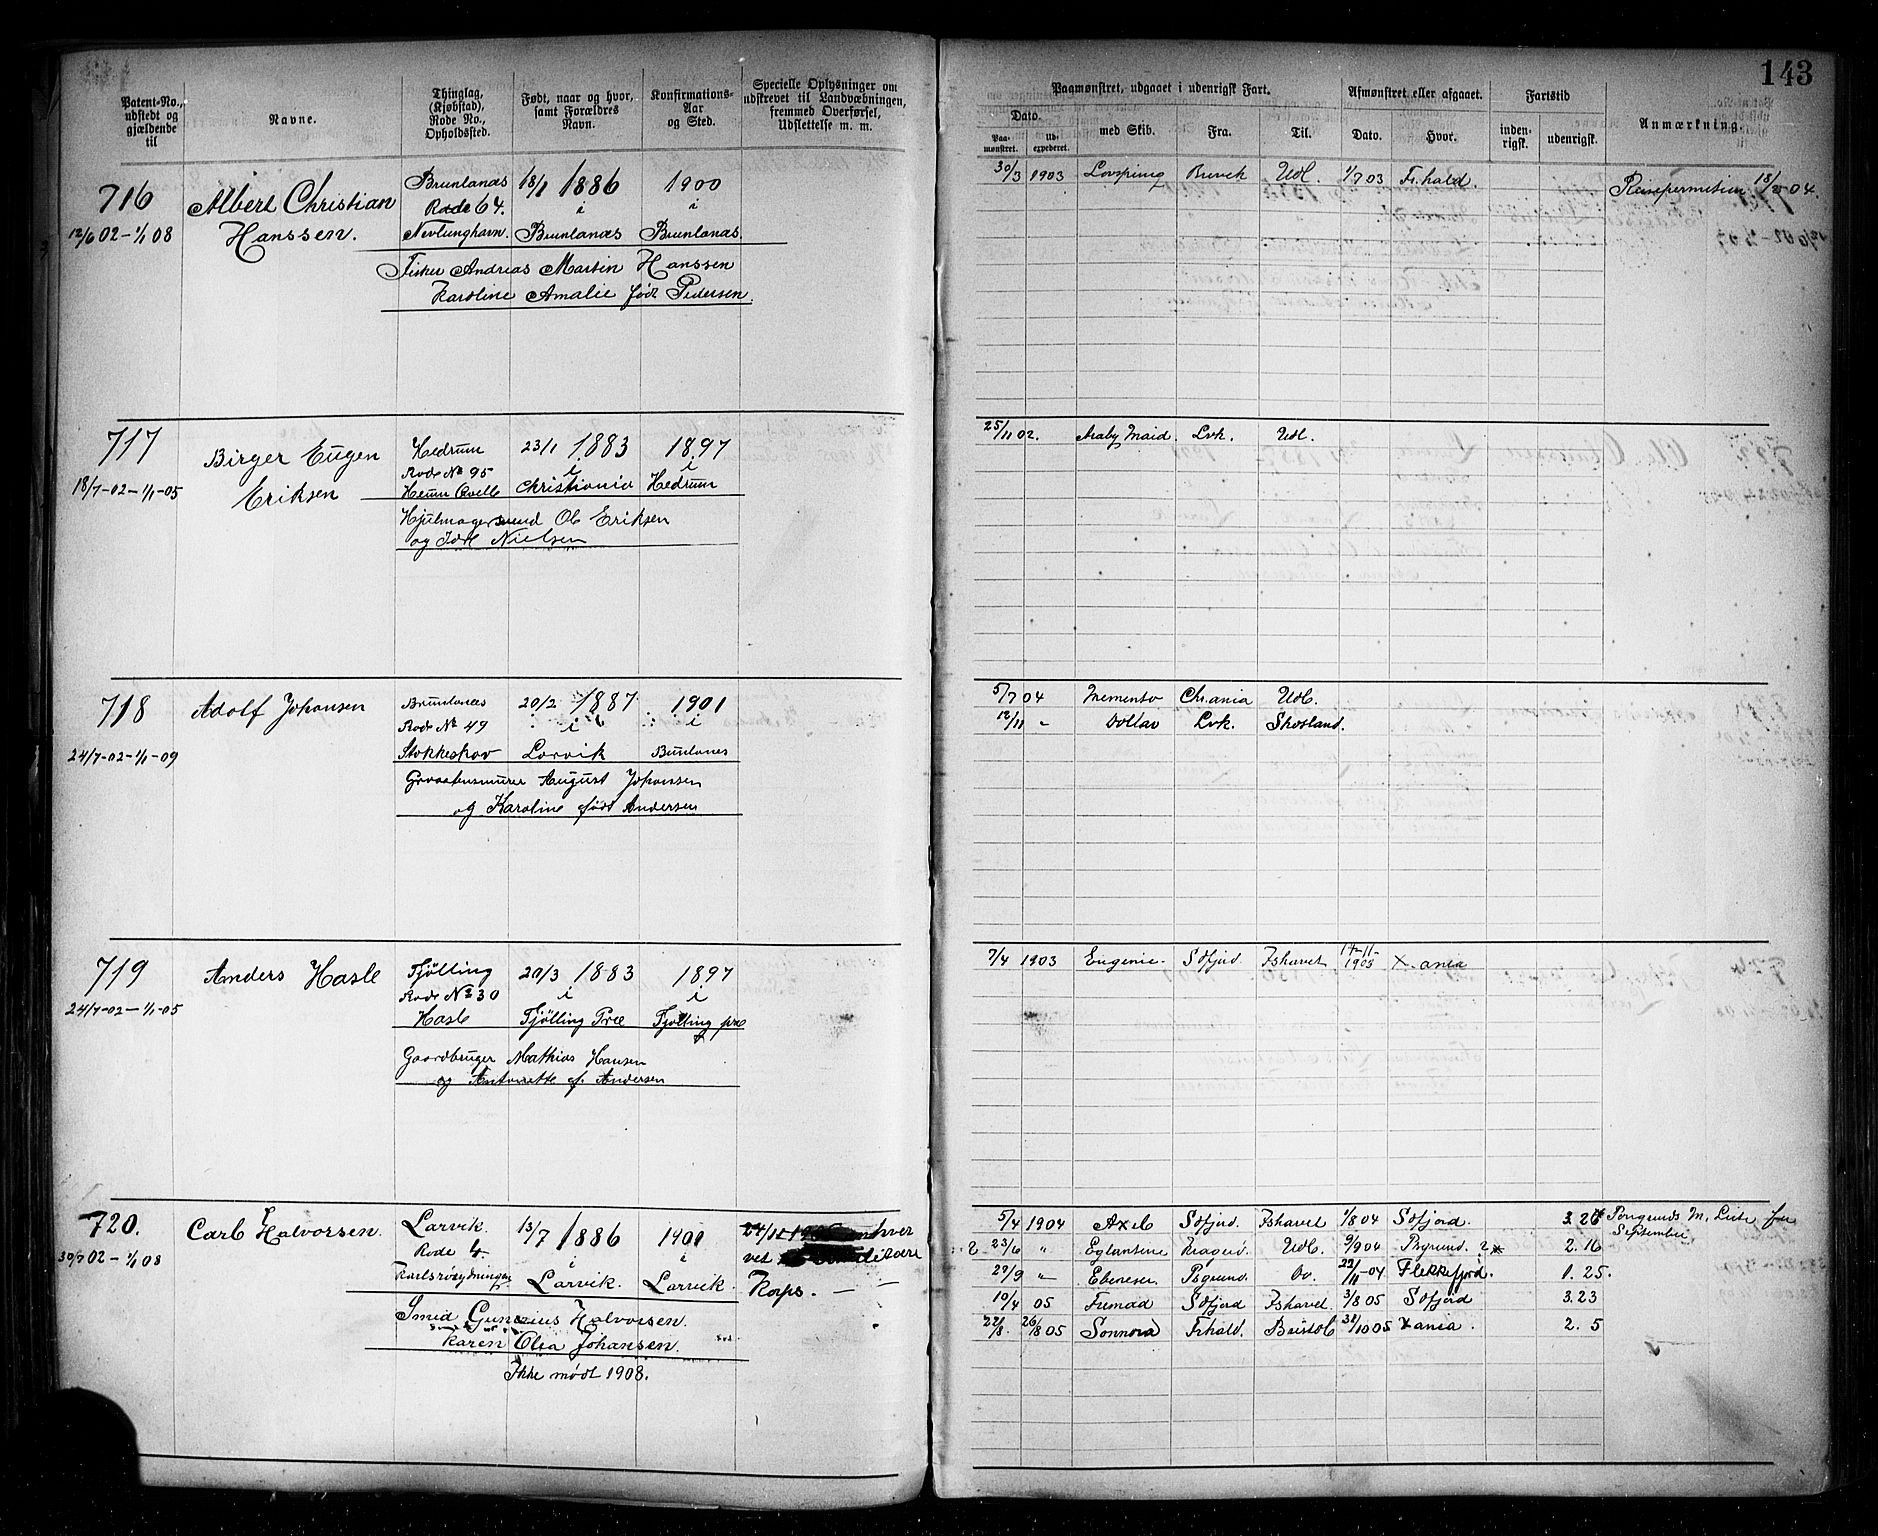 143
Patent-No., udstedt og gjældende til
Navne.
Thinglag, (Kjøbstad), Rode No., Opholdssted.
Født, naar og hvor, samt Forældres Navn.
Konfirmations-Aar og Sted.
Specielle Oplysninger om udskrevet til Landvæbningen, fremmed Overførsel, Udslettelse m. m.
Paamønstret, udgaaet i udenrigsk Fart.
Dato.
Paamønstret.
Udexpederet.
med Skib.
Fra.
Til.
Afmønstret eller afgaaet.
Dato.
Hvor.
Fartstid
indenrigsk.
udenrigsk.
Anmærkning.
716
12/6 02 - 1/1 08
Albert Christian
Hanssen.
Brunlanæs
Rode 64.
Nevlunghavn.
18/1 1886
i
Brunlanæs
1900
i
Brunlanæs
Fisker Andreas Martin Hanssen
Karoline Amalie født Pedersen
30/3 1903 Brevik Udl. 1/7 03 Fr.hald.
717
18/7-02-1/1-05
Birger Eugen
Eriksen
Hedrum
Rode No 95
23/1 1883
i
Christiania
1897
i
Hedrum
Hjulmagersvend Ol. Eriksen
og Nielsen
25/11 02. Araby Maid. Lvk. Udl.
718
24/7-02-1/1-09
Adolf Johansen
Brunlanæs
Rode No 49
Stokkeskov
20/2 1887
i
Larvik
1901
i
Brunlanæs
August Johansen
og Karoline født Andersen
5/7 04 Memento Chr.ania Udl.
12/11 " Lvk. Skotland.
719
24/7-02-1/1-05
Anders Hasle
Tjölling
Rode No 30
Hasle
20/3 1883
i
Tjölling Præ
1897
i
Tjölling præ
Gaardbruger Mathias Hansen
og Antonette f. Andersen
7/4 1903 Eugenie. Sdfjord Ishavet 1903 X.ania
720.
30/7 02 - 1/1 08
Carl Halvorsen.
Larvik.
Rode 4.
13/7 1886
i
Larvik.
1901
i
Larvik.
Korps.
Smid Halvorsen.
Karen Olea Johansen.
Ikke mødt 1908.
5/4 1904 Axel Sdfjord. Ishavet 1/8 04 Sdfjord. 3.26
September
23/6 " Eglantine Kragerö. Udl. 9/9 04 Prgrund. 2.16
29/9 " Ebeneser Prgrund. Do. 22/11-04 Flekkefjord. 1.25.
10/4 05 Sdfjord Ishavet 3/8 05 Sdfjord 3.23
22/8. 26/8 05 Sonnora Frhald. Bristol 31/10 05 Xania. 2.5